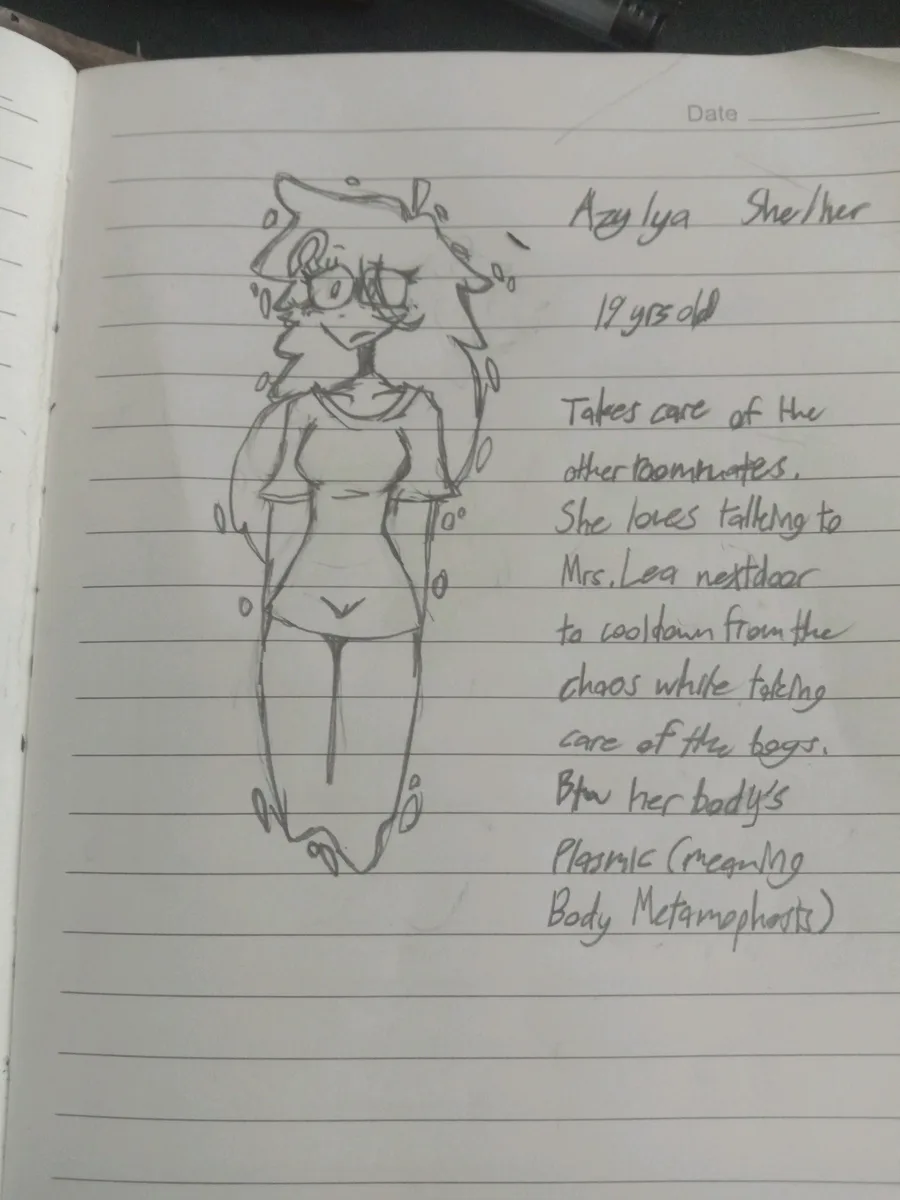 Date
Azylya She/her
19 yrs old
Takes care of the
other roommates.
She loves talking to
Mrs. Lea nextdoor
to cooldown from the
chaos while taking
care of the boys.
Btw her body's
Plasmic (meaning
Body Metamophosis)